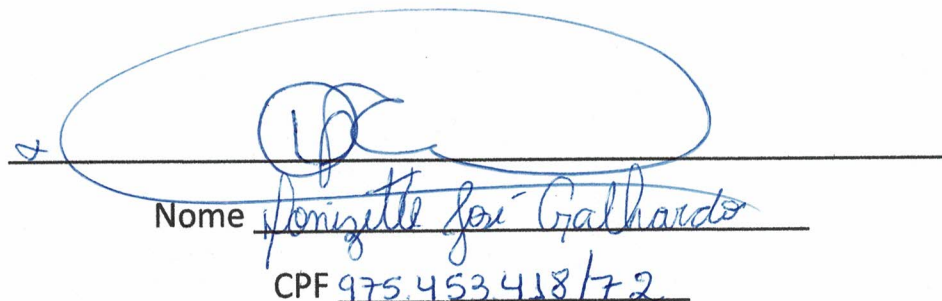 Nome Donizette José Galhardo
CPF 975.453.418/72